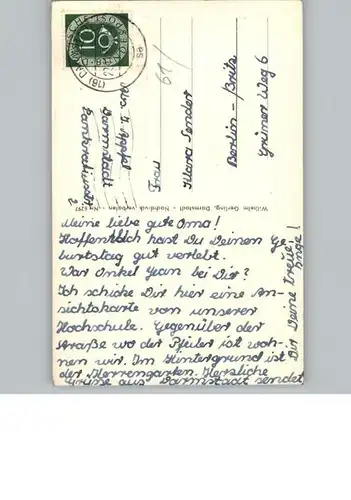 10
(16) DA
Abs. J. Appel
Darmstadt
Pankratiusstr.
2
61/
Frau
Klara Sender
Berlin - Britz
Grüner Weg 6
Wilhelm Gerling, Darmstadt - Nachdruck verboten - Nr.
Meine liebe gute Oma!
Hoffentlich hast Du Deinen Ge
burtstag gut verlebt.
War Onkel Jean bei Dir?
Ich schicke Dir hier eine An-
sichtskarte von unserer
Hochschule. Gegenüber der
Straße wo der Pfeiler ist woh-
nen wir. Im Hintergrund ist
der Herrengarten. Herzliche
Grüße aus Darmstadt sendet
Dir Deine treue
Inge!